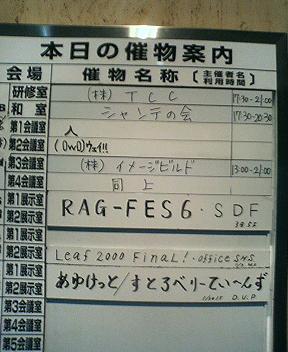 本日の催物案内
会場 催物名称 [主催者名 利用時間]
研修室 (株) TCC 17:30-21:00
和室 シャンテの会 17:30-20:30
第1会議室 人
第2会議室 (OwO)ウェイ!!
第3会議室 (株) イメージビルド 13:00-21:00
第4会議室 同上
第1展示室 RAG-FES6・SDF
第2展示室
第1展示室 Leaf 2000 Final!・office S.N.S.
第1展示室 あゆけっと/すとろべりーてぃーんず D.U.P
第2展示室
第3会議室
第4会議室
第5会議室